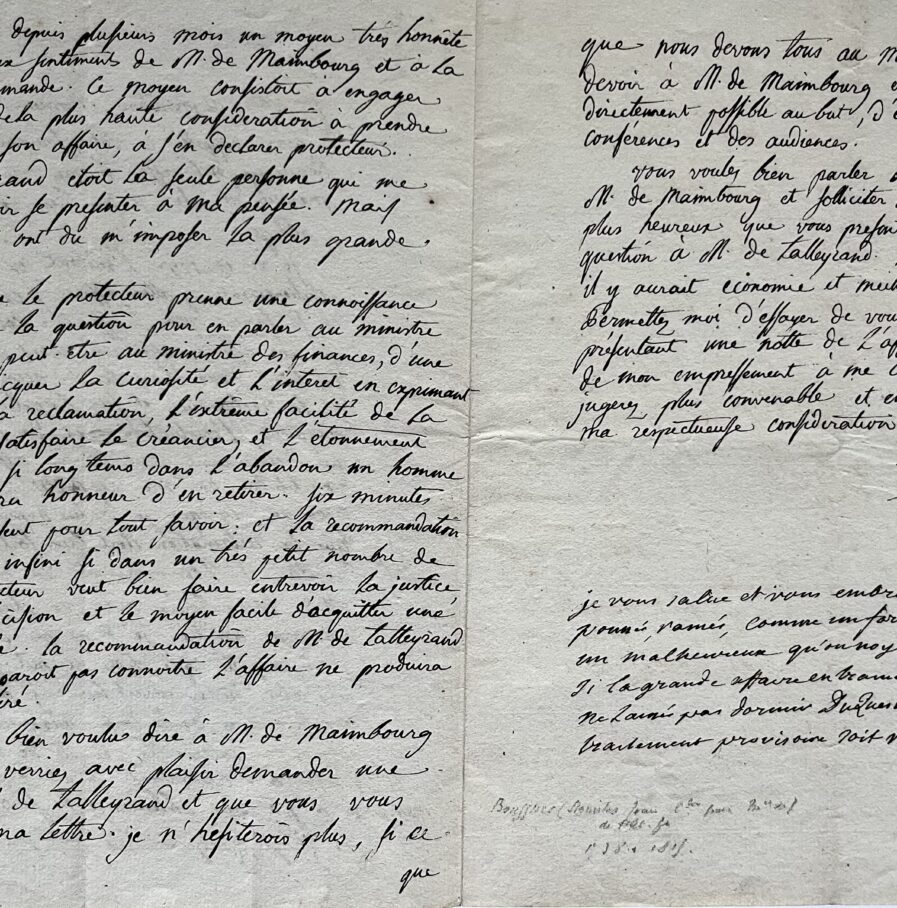 depuis plusieurs mois un moyen tres honnête
sentiments de M. de Maimbourg et à la
mande. Ce moyen consistoit à engager
de la plus haute consideration à prendre
son affaire, à s'en declarer protecteur.
rand etoit la seule personne qui me
se presenter à ma pensée. Mais
ont du m'imposer la plus grande.
le protecteur prenne une connoissance
la question pour en parler au ministre
peut-etre au ministre des finances, d'une
quer la curiosité et l'interet en exprimant
reclamation, l'extrême facilité de la
satisfaire le créancier, et l'étonnement
si long tems dans l'abandon un homme
ra honneur d'en retirer. six minutes
pour tout savoir; et la recommandation
infini si dans un très petit nombre de
cteur veut bien faire entrevoir la justice
cision et le moyen facile d'acquitter une
la recommandation de M. de Talleyrand
paroit pas connoitre l'affaire ne produira
iré.
bien voulu dire à M. de Maimbourg
verriez avec plaisir demander une
de Talleyrand et que vous vous
ma lettre. je n'hesiterois plus, si ce
que
que nous devons tous au m
devoir à M. de Maimbourg e
directement possible au but, d'é
conférences et des audiences.
vous voulez bien parler
M. de Maimbourg et solliciter
plus heureux que vous presen
question à M. de Talleyrand.
il y aurait economie et
Permettez moi d'essayer de vou
présentant une notte de l'af
de mon empressement à me c
jugerez plus convenable et en
ma respectueuse consideration
je vous salue et vous embre
comme un for
un malheureux qu'on noy
si la grande affaire
ne pas dormir DuQues
traitement provisoire soit
Boufflers (Stanislas Jean